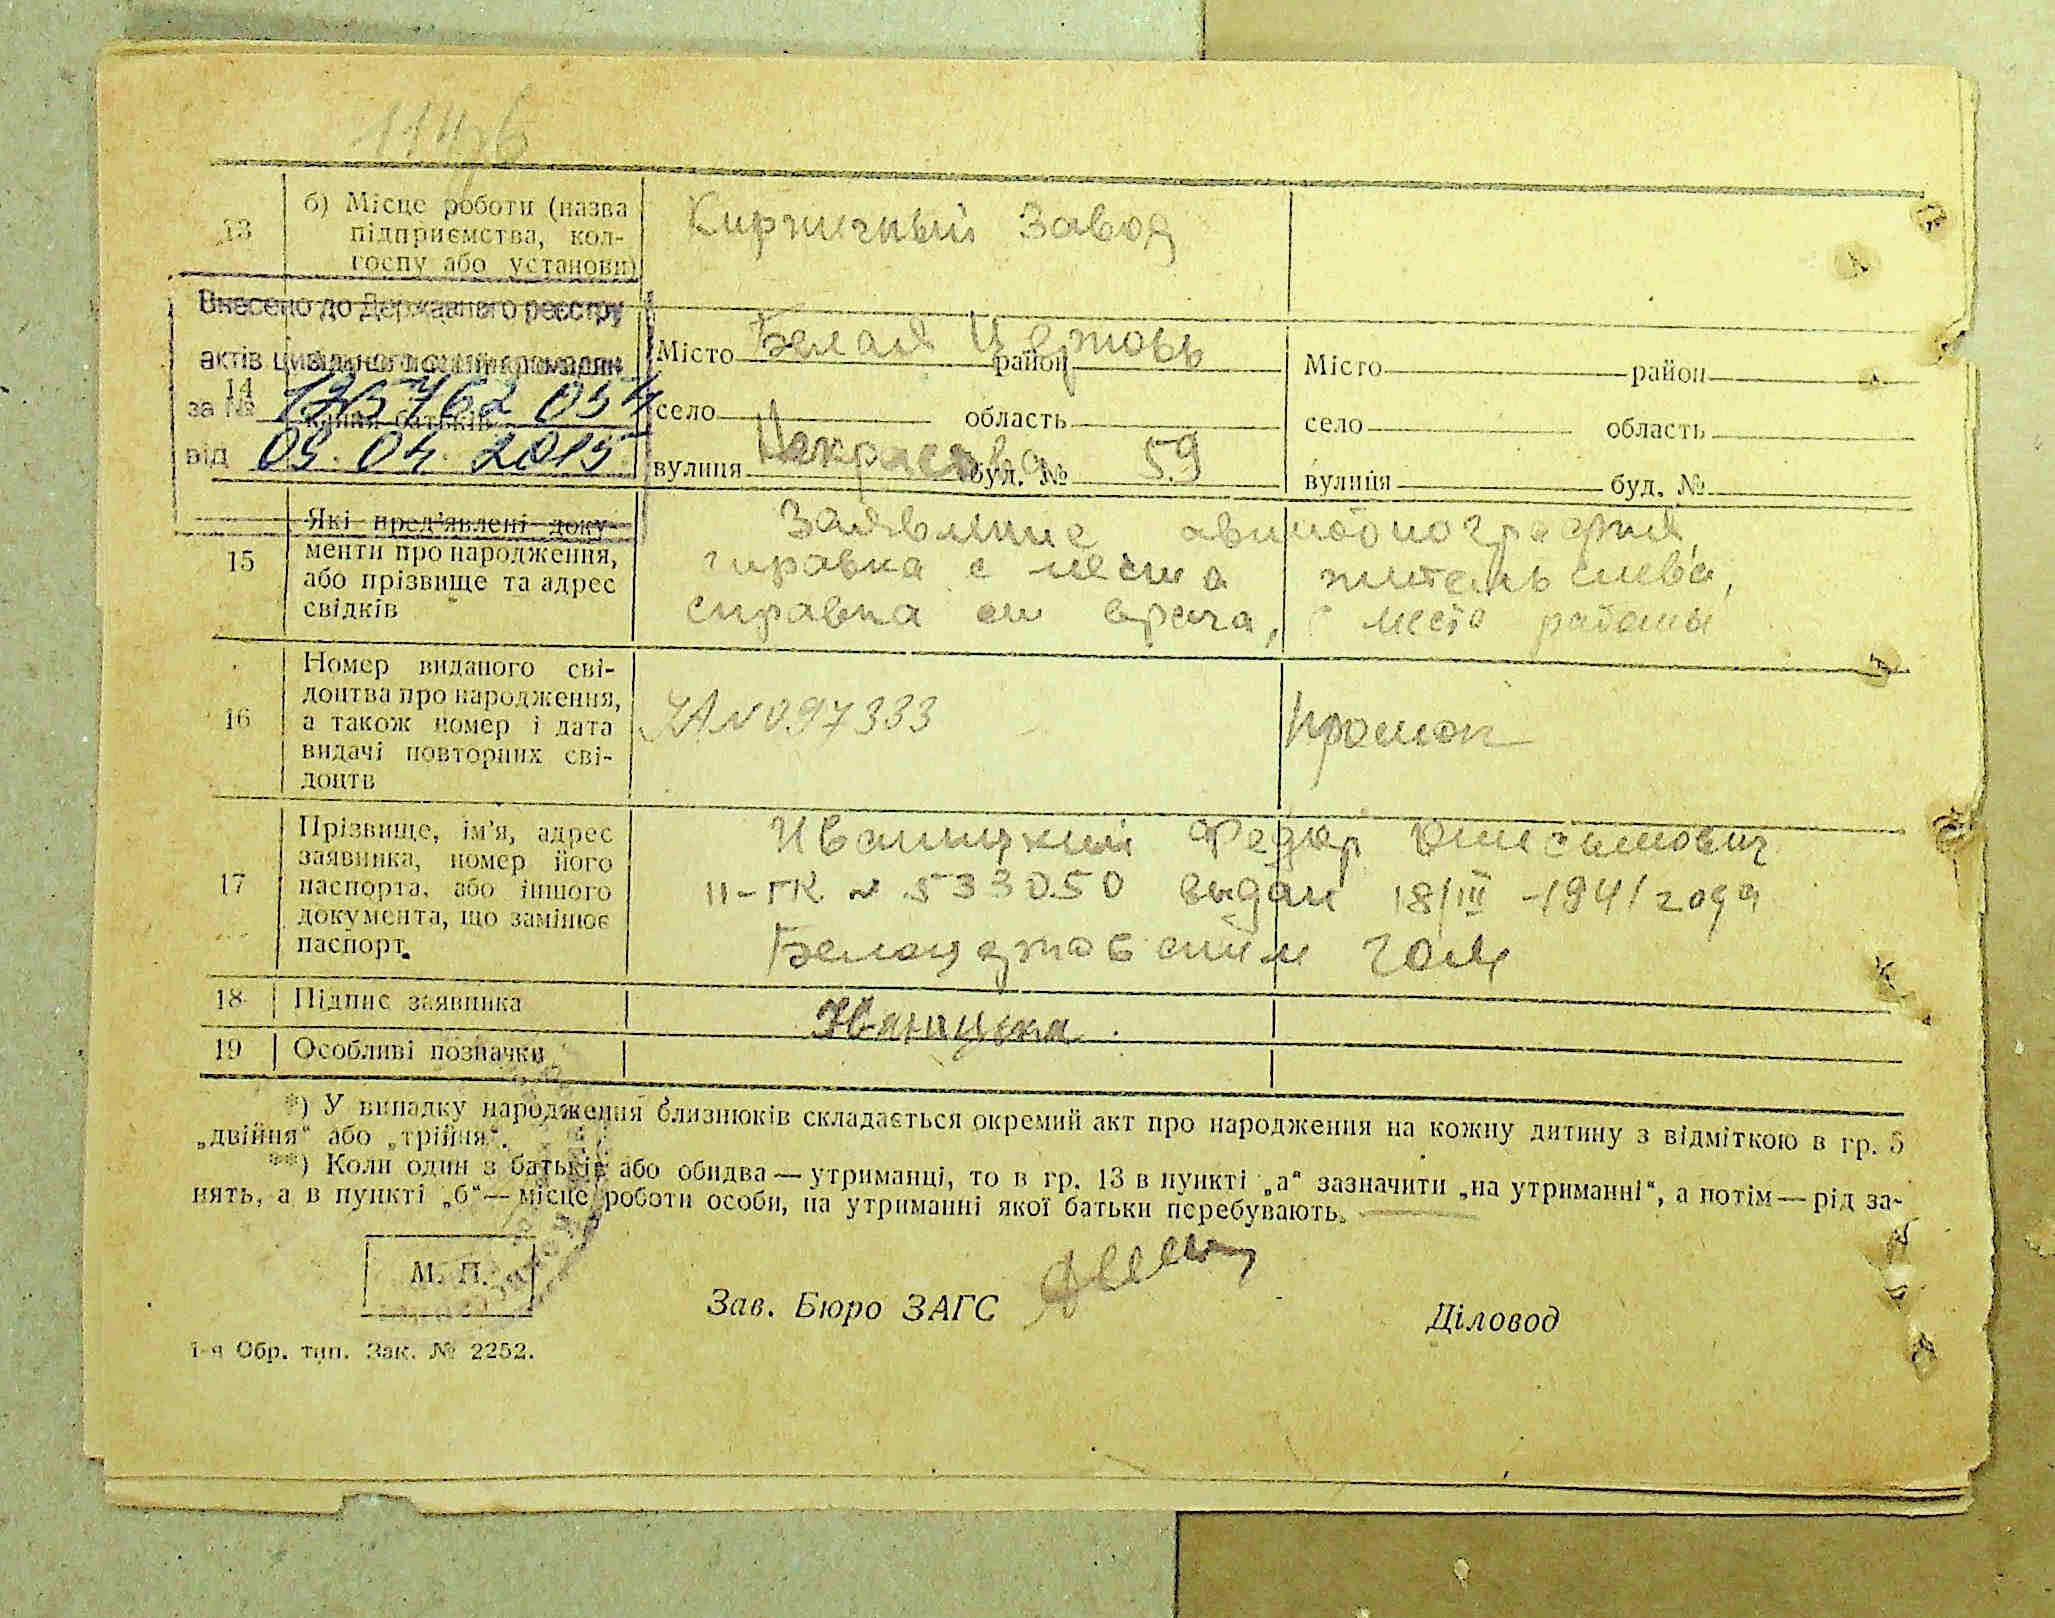 13
б) Місце роботи (назва
підприємства, кол-
госпу або установи)
Кирпичный Завод
Внесено до Державного реєстру
актів цивільного стану громадян
за №
від 09.04.2015
14
Місто Белая Церковь район
село область
вулиця Некрасова буд. № 59
Місто район
село область
вулиця буд. №
15
Які пред'явлені доку-
менти про народження,
або прізвище та адрес
свідків
Заявление автобиография,
справка с места жительства,
справка от врача, с место работы
16
Номер виданого сві-
доцтва про народження,
а також номер і дата
видачі повторних сві-
доцтв
N 097333
17
Прізвище, ім'я, адрес
заявника, номер його
паспорта, або іншого
документа, що замінює
паспорт.
Иваницкий Федор Онисимович
II-ГК № 533050 выдан 18/III-1941 года
Белоцерковским
18 Підпис заявника
19 Особливі позначки
*) У випадку народження близнюків складається окремий акт про народження на кожну дитину з відміткою в гр. 5
„двійня“ або „трійня“.
**) Коли один з батьків або обидва — утриманці, то в гр. 13 в пункті „а“ зазначити „на утриманні“, а потім — рід за-
нять, а в пункті „б“ — місце роботи особи, на утриманні якої батьки перебувають.
М. П.
Зав. Бюро ЗАГС
Діловод
1-я Обр. тип. Зак. № 2252.